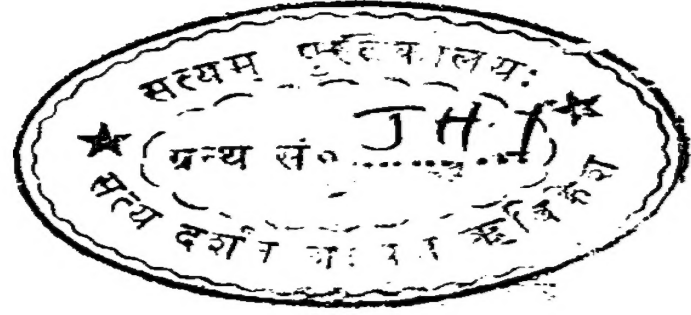 सत्यम् पुस्तकालयः
ग्रन्थ सं० JH.1
सत्य दर्शन ऋषिकेश